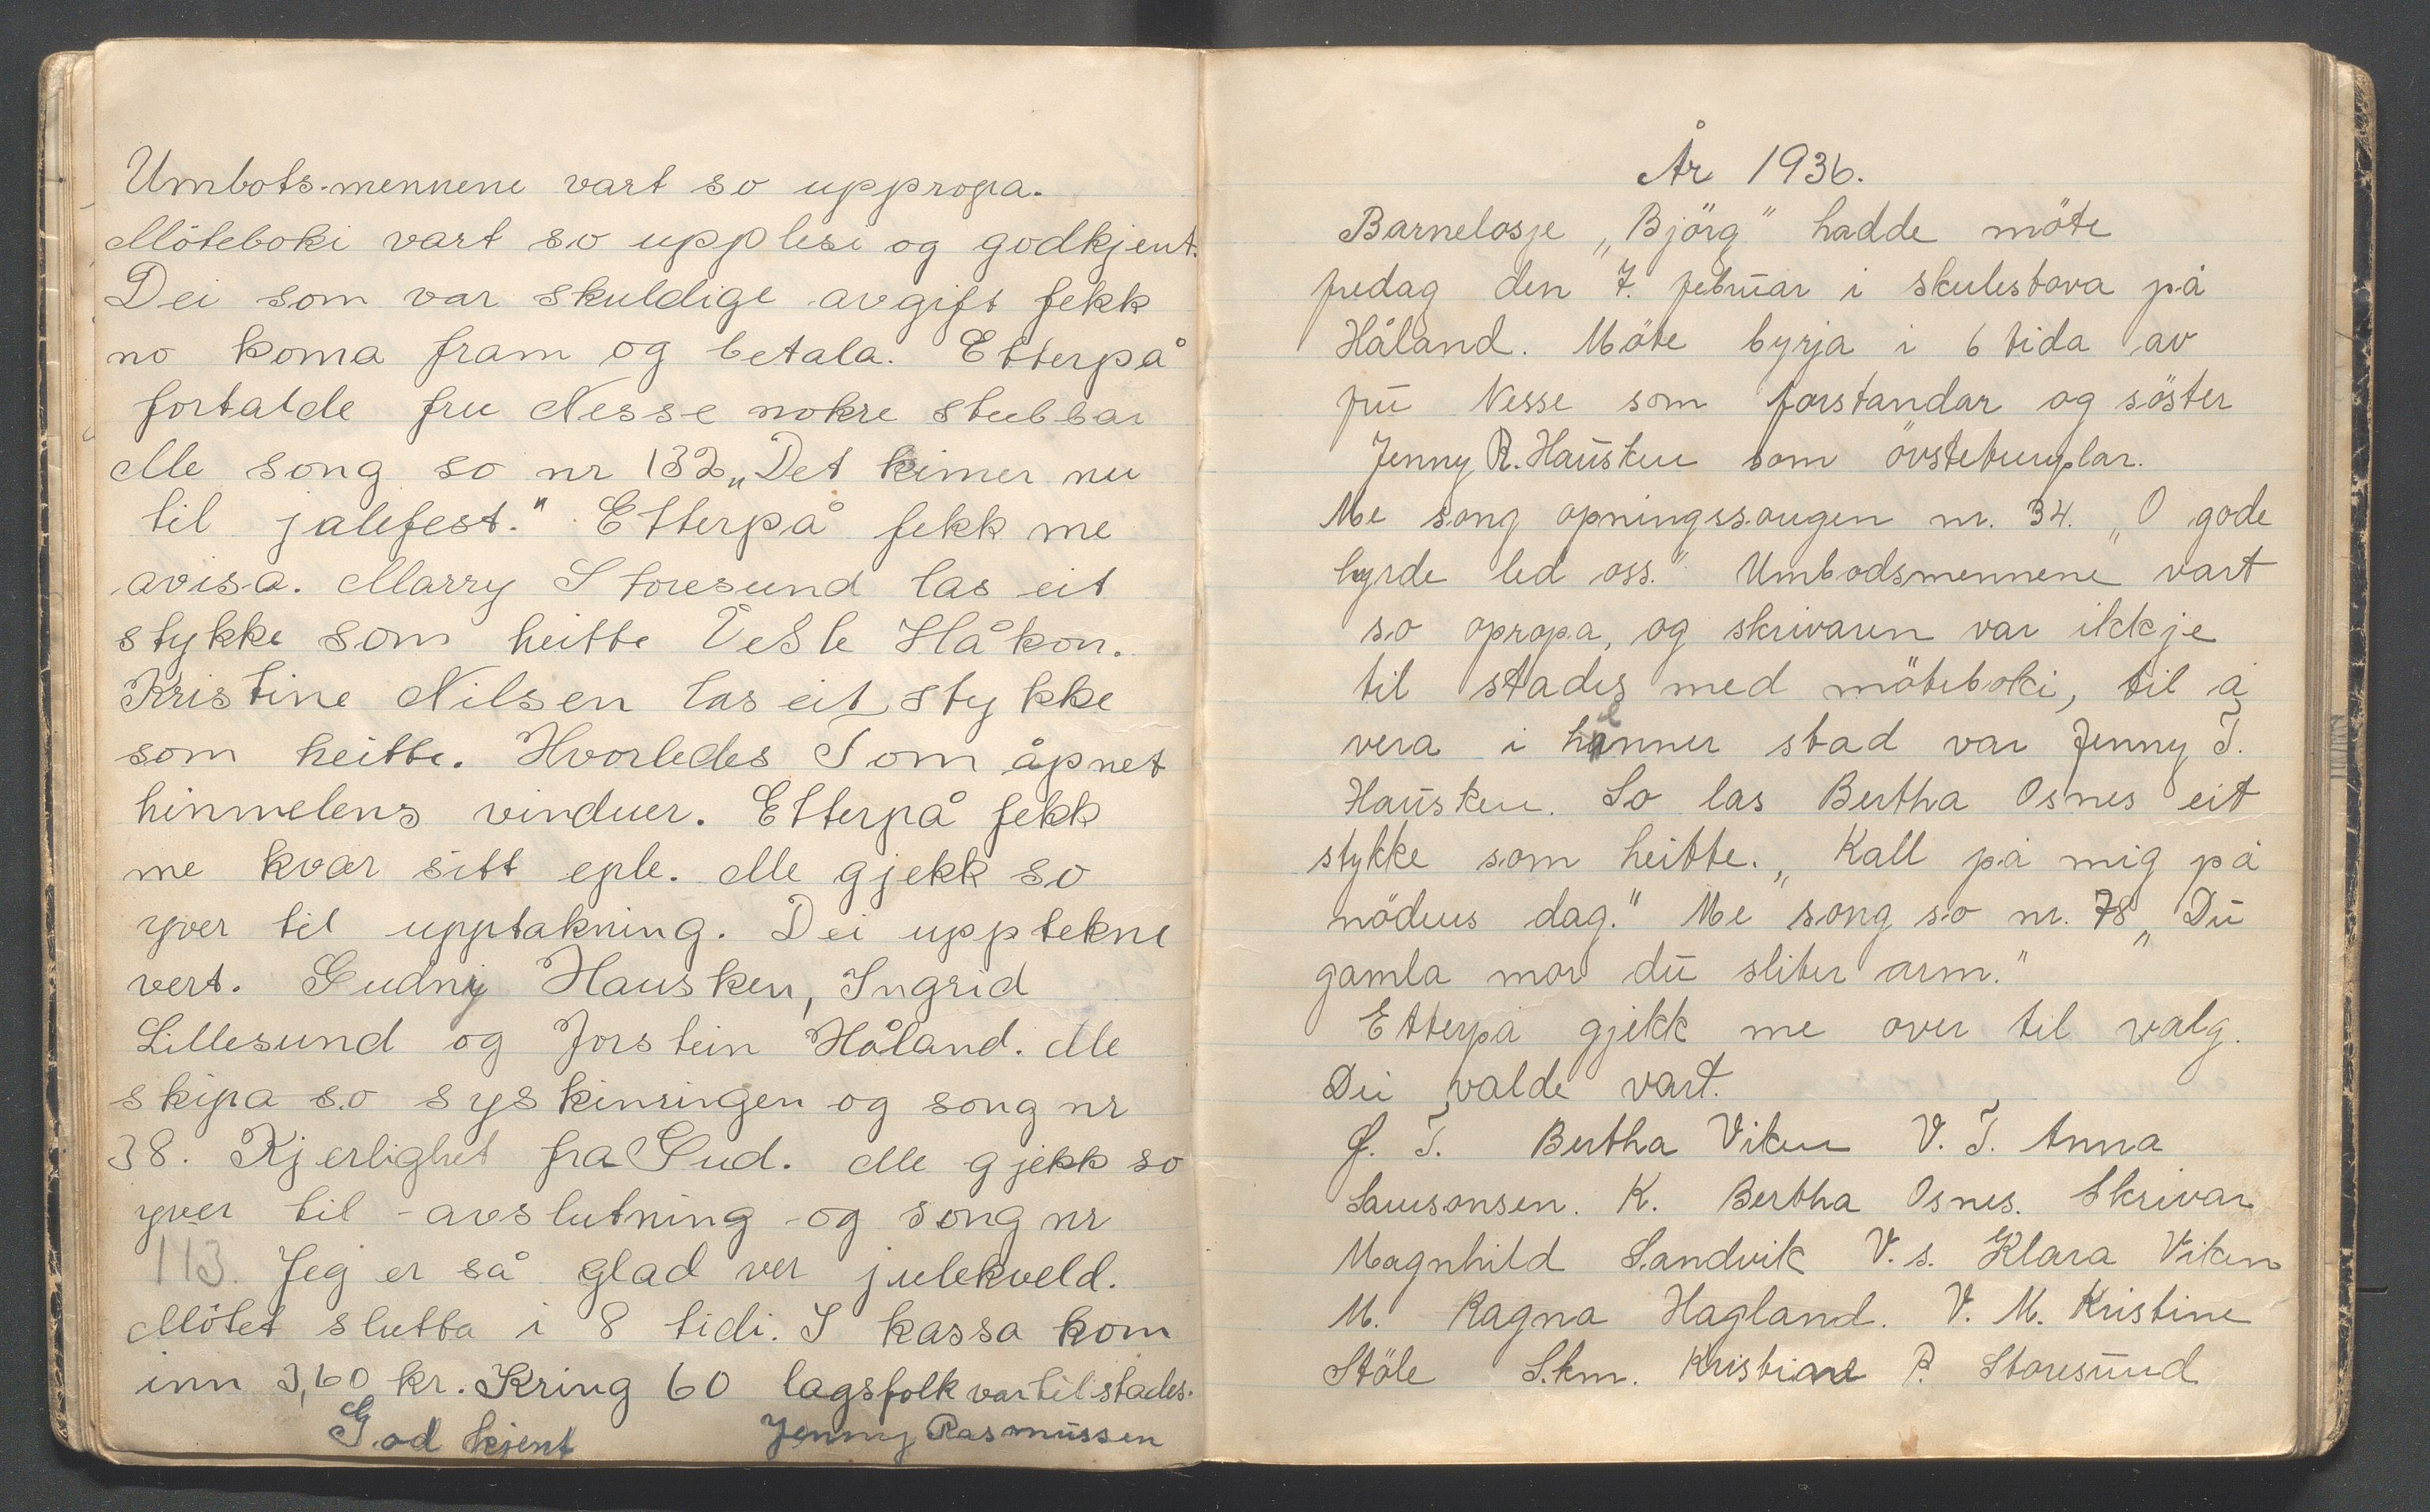 Umbots-mennene vart so uppropa.
Möteboki vart so upplesi og godkjent.
Dei som var skuldige avgift fekk
no koma fram og betala. Etterpå
fortalde fru Nesse nokre stubbar
Me song so nr 132 „Det kimer nu
til julefest." Etterpå fekk me
avisa. Marry Storesund las eit
stykke som heitte Vesle Håkon.
Kristine Nilsen las eit stykke
som heitte. Hvorledes Tom åpnet
himmelens vinduer. Etterpå fekk
me kvar sitt eple. Me gjekk so
yver til upptakning. Dei upptekne
vert. Gudny Hausken, Ingrid
Lillesund og Jorstein Håland. Me
skipa so syskinringen og song nr
38. Kjerlighet fra Gud. Me gjekk so
yver til avslutning og song nr
113. Jeg er så glad ver julekveld.
Mötet slutta i 8 tidi. I kassa kom
inn 3,60 kr. Kring 60 lagsfolk var til stades.
God kjent Jenny Rasmussen
År 1936.
Barnelosje „Björg" hadde möte
fredag den 7. februar i skulestova på
Håland. Möte byrja i 6 tida av
fru Nesse som forstandar og söster
Jenny R. Hausken som övstetemplar.
Me song opningssongen nr. 34. „O gode
hyrde led oss." Umbodsmennene vart
so opropa, og skrivaren var ikkje
til stades med möteboki, til å
vera i henner stad var Jenny T.
Hausken. So las Bertha Osnes eit
stykke som heitte. „Kall på mig på
nödens dag." Me song so nr. 78 „Du
gamla mor du sliter arm."
Etterpå gjekk me over til valg.
Dei valde vart.
Ø. T. Bertha Viken V. T. Anna
Samsonsen. K. Bertha Osnes. Skrivar
Magnhild Sandvik V. s. Klara Viken
M. Ragna Hagland. V. M. Kristine
Stöle S.km. Kristine P. Storesund